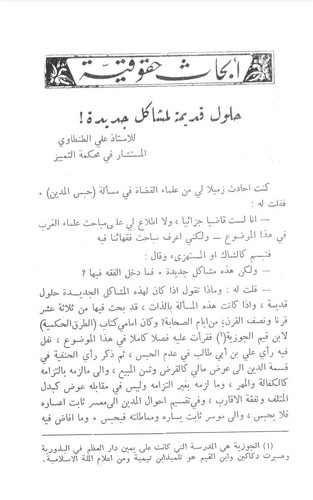 أبحاث حقوقية
حلول قديمة لمشاكل جديدة !
للاستاذ علي الطنطاوي
المستشار في محكمة التمييز
كنت احادث زميلا لي من علماء القضاة في مسألة (حبس المدين) .
فقلت له :
— انا لست قاضيا جزائيا ، ولا اطلاع لي على مباحث علماء الغرب
في هذا الموضوع — ولكني اعرف مباحث فقهائنا فيه
فتبسم كالشاك او المستهزىء وقال :
— ولكن هذه مشاكل جديدة . فما دخل الفقه فيها ؟
— قلت له : وماذا تقول اذا كان لهذه المشاكل الجديدة حلول
قديمة ، واذا كانت هذه المسألة بالذات ، قد بحث فيها من ثلاثة عشر
قرنا ونصف القرن، من ايام الصحابة؟ وكان امامي كتاب (الطرق الحكمية)
لابن قيم الجوزية (١) فقرأت عليه فصلا كاملا في هذا الموضوع ، نقل
فيه رأي علي بن أبي طالب في عدم الحبس ، ثم ذكر رأي الحنفية في
قسمة الدين الى عوض مالي كالقرض وثمن المبيع ، والى مالزمه بالتزامه
كالكفالة والمهر ، وما لزمه بغير التزامه وليس في مقابله عوض كبدل
المتلف ونفقة الاقارب ، وفي تقسيم احوال المدين الى معسر ثابت اعساره
فلا يحبس ، والى موسر ثابت يساره ومماطلته فيحبس . وما افاض فيه
(١) الجوزية هي المدرسة التي كانت على يمين دار العظم في البذورية
وصيرت دكاكين وابن القيم هو تلميذ ابن تيمية ومن اعلام اللة الاسلامية.